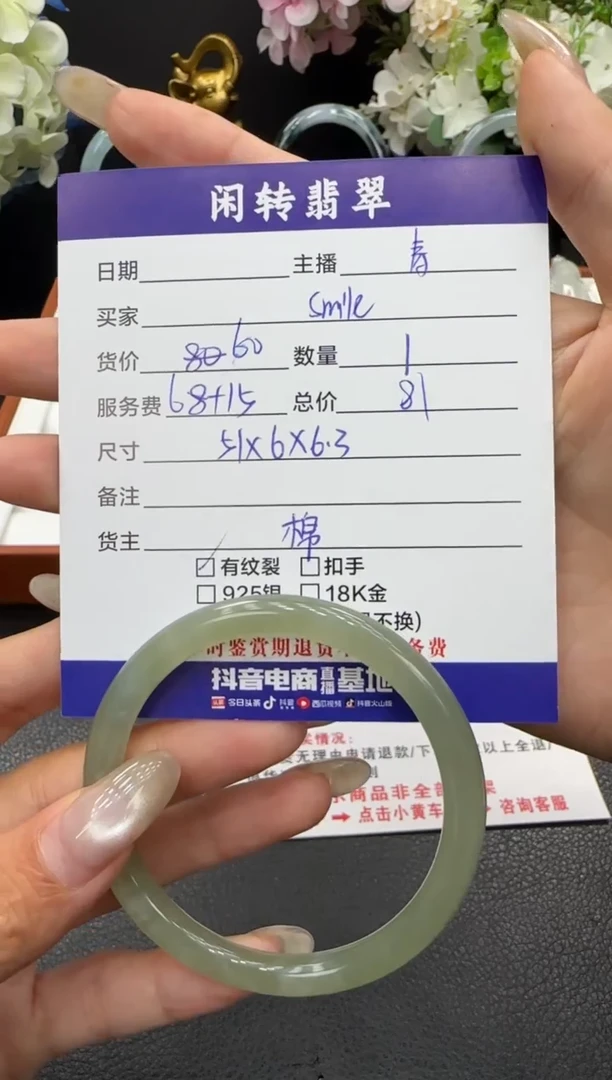 闲转翡翠
日期 主播 青
买家 smile
货价 80 60 数量 1
服务费 68+15 总价 81
尺寸 51X6X6.3
备注
货主 棉
☑有纹裂 □扣手
□925银 □18K金
不换)
时鉴赏期退货 务费
抖音电商直播基地
头条 今日头条 抖音 西瓜视频 抖音火山版
买情况:
无理由申请退款/下 以上全退/
则
示商品非全部 架
→ 点击小黄车 咨询客服